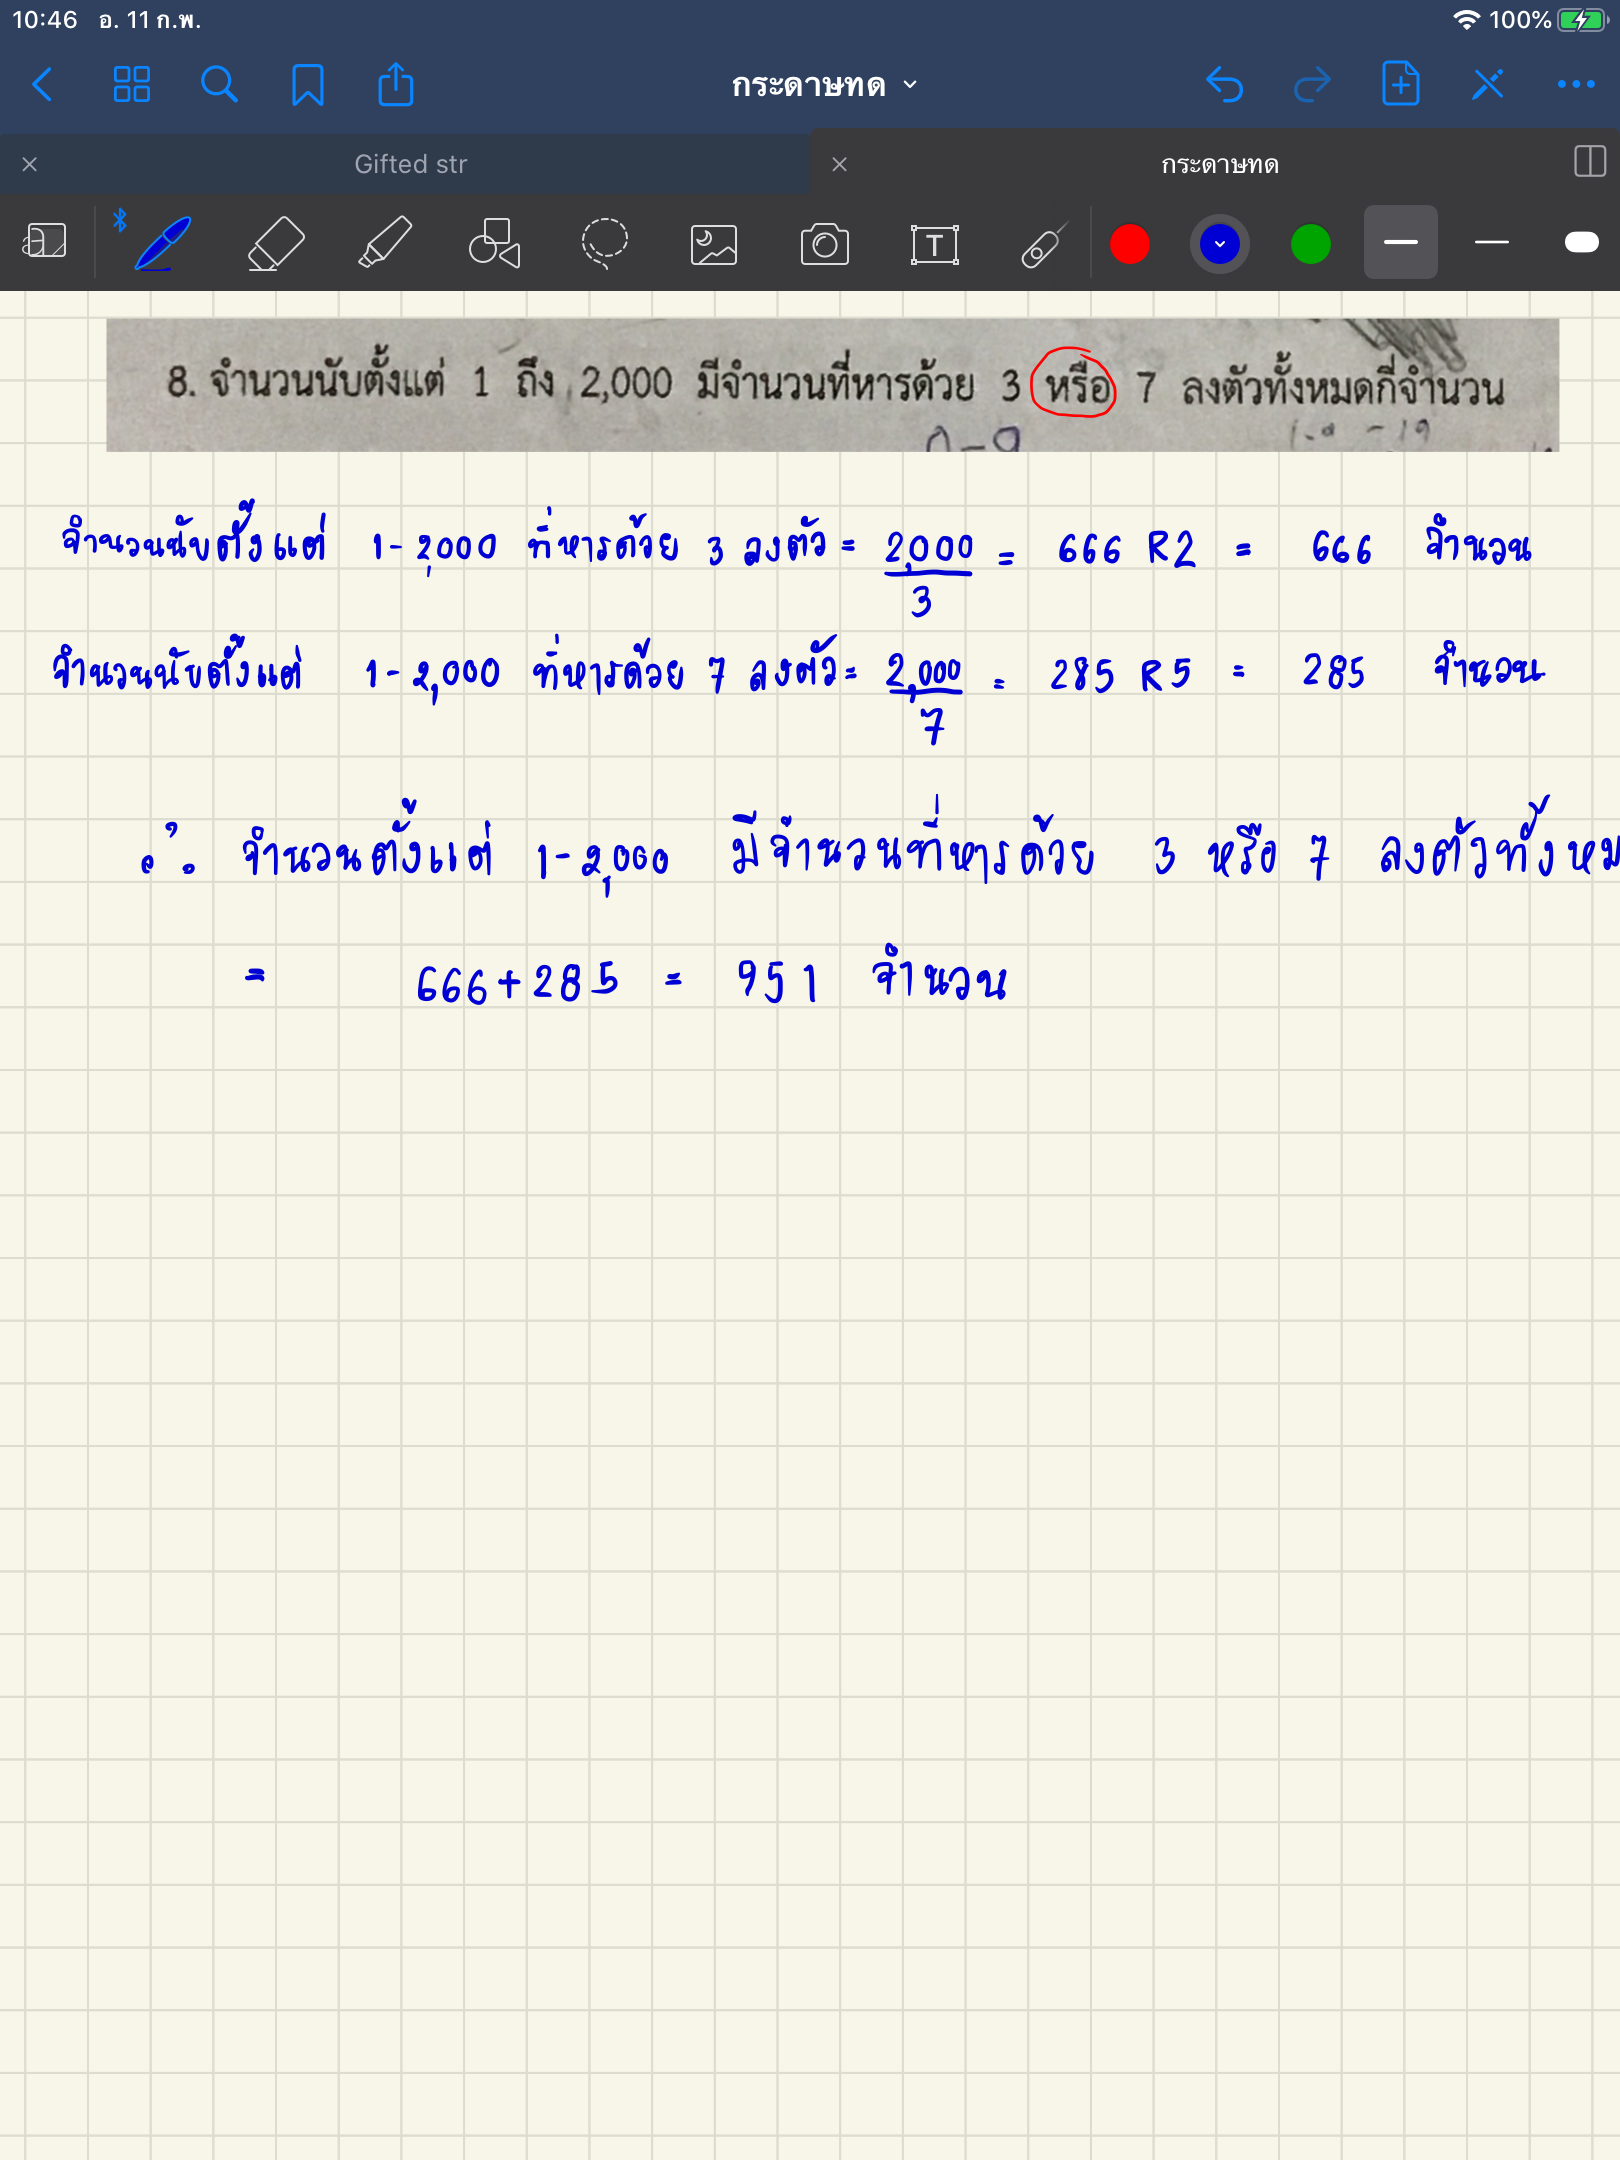 10:46 อ. 11 ก.พ. 100%
กระดาษทด
Gifted str กระดาษทด
8. จำนวนนับตั้งแต่ 1 ถึง 2,000 มีจำนวนที่หารด้วย 3 หรือ 7 ลงตัวทั้งหมดกี่จำนวน
จำนวนนับตั้งแต่ 1-2,000 ที่หารด้วย 3 ลงตัว = 2,000/3 = 666 R2 = 666 จำนวน
จำนวนนับตั้งแต่ 1-2,000 ที่หารด้วย 7 ลงตัว = 2,000/7 = 285 R5 = 285 จำนวน
∴ จำนวนตั้งแต่ 1-2,000 มีจำนวนที่หารด้วย 3 หรือ 7 ลงตัวทั้งหม
= 666+285 = 951 จำนวน